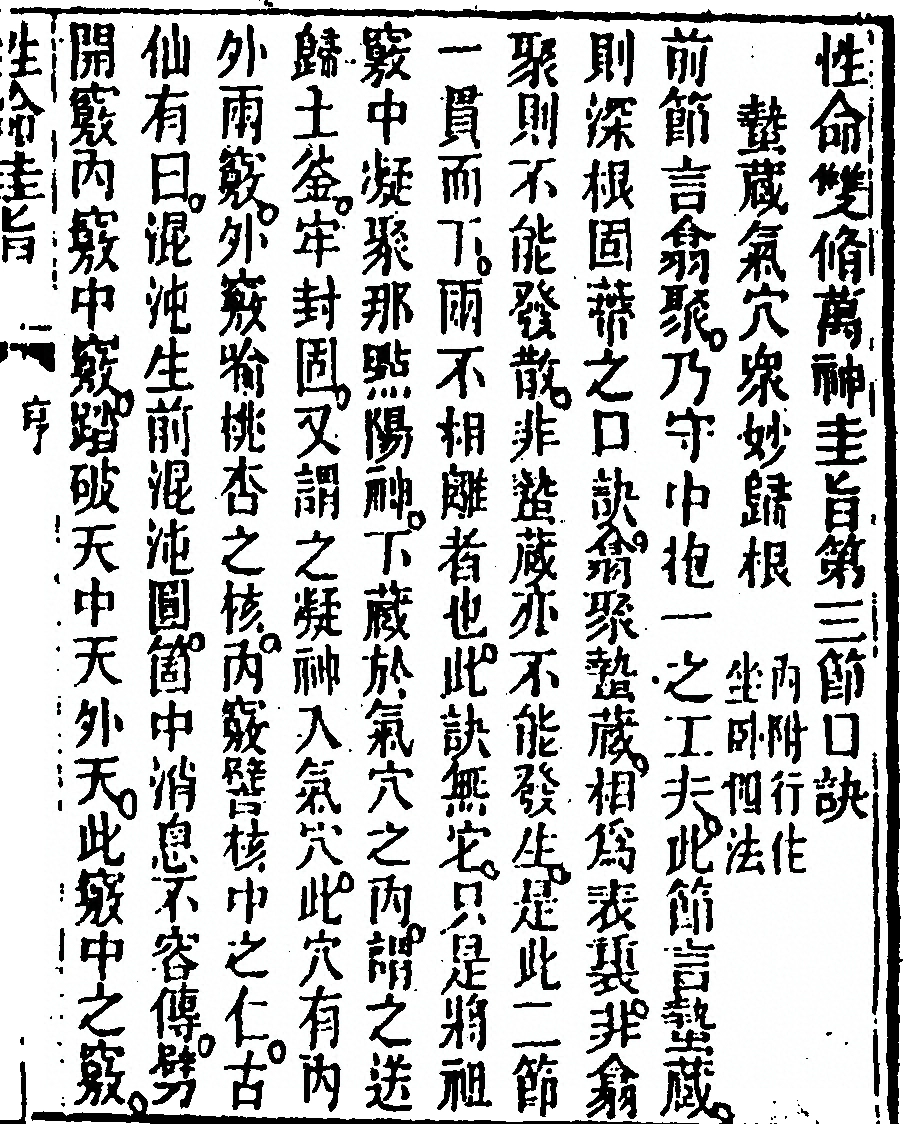 性命雙脩萬神圭旨第三節口訣
蟄藏氣穴衆妙歸根
內附行住
坐臥四法
前節言翕聚。乃守中抱一之工夫。此節言蟄藏。
則深根固蒂之口訣。翕聚蟄藏。相爲表裏。非翕
聚則不能發散。非蟄藏亦不能發生。是此二節
一貫而下。兩不相離者也。此訣無它。只是將祖
竅中凝聚那點陽神。下藏於氣穴之內。謂之送
歸土釜。牢封固。又謂之凝神入氣穴。此穴有內
外兩竅。外竅喻桃杏之核。內竅譬核中之仁。古
仙有曰。混沌生前混沌圓。箇中消息不容傳。劈
開竅內竅中竅。踏破天中天外天。此竅中之竅。
性命圭旨
序